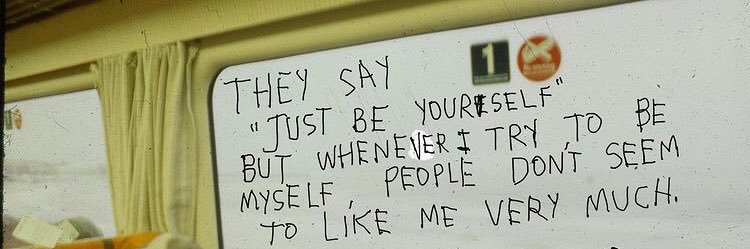 1
THEY SAY
"JUST BE YOURSELF"
BUT WHENEVER I TRY TO BE
MYSELF, PEOPLE DON'T SEEM
TO LIKE ME VERY MUCH.